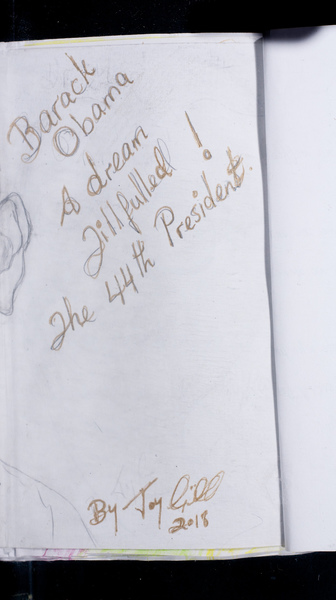 Barack
Obama
A dream
fillfulled!
The 44th President.
By Joy Gill
2018